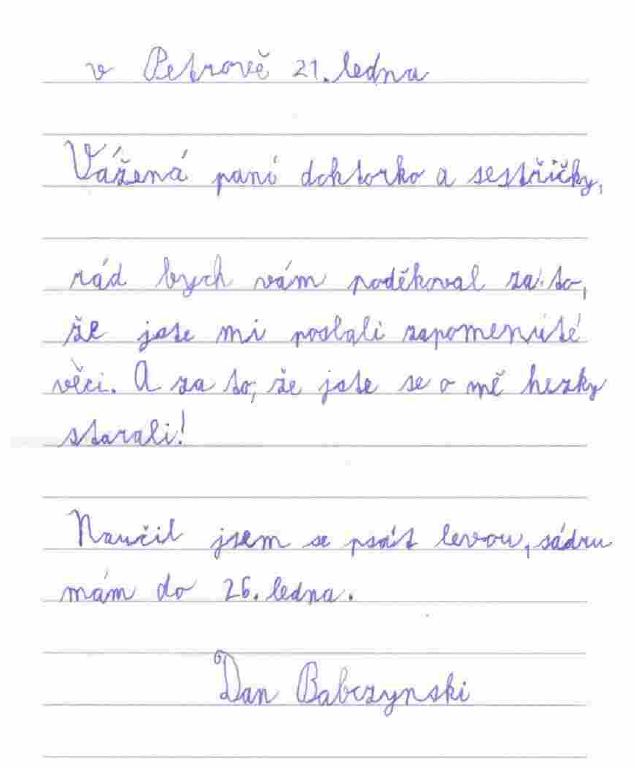 v Petrově 21. ledna
Vážená paní doktorko a sestřičky,
rád bych vám poděkoval za to,
že jste mi poslali zapomenuté
věci. A za to, že jste se o mě hezky
starali!
Naučil jsem se psát levou, sádru
mám do 26. ledna.
Dan Babczynski